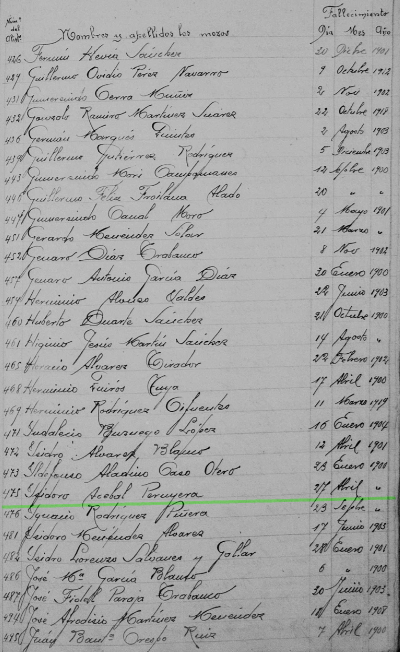 Núm.º del Obdº. Nombres y apellidos los mozos Fallecimiento
Día Mes Año
426 Fermín Hevia Sánchez 20 Dicbre 1901
429 Guillermo Ovidio Perez Navarro 9 Octubre 1912
431 Gumersindo Cerra Muñiz 2 Nov 1902
432 Gonzalo Ramiro Martínez Suárez 22 Octubre 1918
436 Germán Marqués Fuentes 2 Agosto 1903
439 Guillermo Gutiérrez Rodríguez 5 Diciembre 1903
443 Gumersindo Mori Campomanes 12 Sepbre 1900
446 Guillermo Félix Froilana Alado 20 " "
449 Gumersindo Canal Moro 4 Mayo 1901
451 Gerardo Menéndez Solar 21 Marzo "
452 Genaro Díaz Trabanco 8 Nov 1902
457 Genaro Antonio García Díaz 30 Enero 1900
459 Herminio Alonso Valdés 22 Junio 1903
460 Huberto Duarte Sánchez 21 Octubre 1900
461 Higinio Jesús Martín Sánchez 14 Agosto "
465 Horacio Alvarez Tirador 22 Febrero 1902
468 Herminio Quirós Tuya 17 Abril 1900
469 Herminio Rodríguez Cifuentes 11 Marzo 1919
471 Indalecio Buznego López 16 Enero 1904
472 Isidro Alvarez Blanco 12 Abril 1901
473 Ildefonso Aladino Caso Otero 23 Enero 1900
475 Isidoro Acebal Peruyera 27 Abril "
476 Ignacio Rodríguez Piñera 23 Sepbre "
481 Isidoro Menéndez Alvarez 17 Junio 1903
482 Isidro Lorenzo Salvanes y Gollar 28 Enero 1901
486 José Mª García Blanco 6 " 1900
487 José Fidel Paraja Trabanco 30 Junio 1903
494 José Afrodisio Martínez Menéndez 12 Enero 1908
495 Juán Bautª Crespo Ruiz 7 Abril 1900